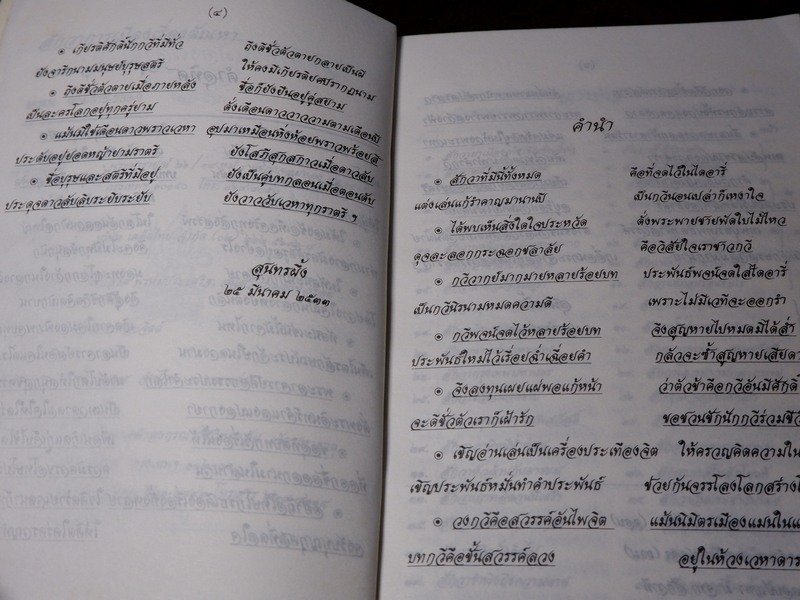 (๔)
๏ เกียรติศักดิ์นักกวีที่มีทั่ว ถึงดีชั่วตัวตายกลายเป็นผี
ยังจารึกนามมนุษย์บุรุษสตรี ให้คงมีเกียรติยศปรากฏนาม
๏ ถึงดีชั่วตัวตายเมื่อภายหลัง ชื่อก็ยังยืนอยู่คู่สยาม
เป็นละครโลกอยู่ทุกครู่ยาม ดั่งเดือนดาววาววามตามเดือนปี
๏ แม้นมิใช่เดือนดาวพราวเวหา อุปมาเหมือนหิ่งห้อยพราวพร้อยสี
ประดับอยู่ยอดหญ้ายามราตรี ยังโสภีสุกสกาวเมื่อดาวลับ
๏ ชื่อบุรุษและสตรีที่มีอยู่ ยังเป็นคู่บทกลอนเมื่อตอนดับ
ประดุจดาวลับลิบระยิบระยับ ยังวาววับเวหาทุกราตรี ฯ
สุนทรผึ้ง
๒๕ มีนาคม ๒๕๓๓
คำนำ
๏ สักวาที่มีนี้ทั้งหมด คือที่จดไว้ในไดอารี่
แต่งเล่นแก้รำคาญมานานปี เป็นกวีนอนเปล่าก็เหงาใจ
๏ ได้พบเห็นสิ่งใดใจประหวัด ดั่งพระพายชายพัดใบไม้ไหว
ดุจละลอกกระฉอกชลาลัย คือวิสัยใจเราชาวกวี
๏ กวีวากย์มากมายหลายร้อยบท ประพันธ์พจน์จดใส่ไดอารี่
เป็นกวีนิรนามหมดความดี เพราะไม่มีเวทีจะออกรำ
๏ กวีพจน์จดไว้หลายร้อยบท จึงสูญหายไปหมดมิได้ส่ำ
ประพันธ์ใหม่ไว้เรื่อยฉ่ำเฉื่อยคำ กลัวจะซ้ำสูญหายเสียดา
๏ จึงลงทุนเผยแผ่พอแก้หน้า ว่าตัวข้าคือกวีอันมีศักดิ์
จะดีชั่วตัวเราก็เฝ้ารัก ขอชวนชักนักกวีร่วมชี
๏ เชิญอ่านเล่นเป็นเครื่องประเทืองจิต ให้ครวญคิดความใน
เชิญประพันธ์หมั่นทำคำประพันธ์ ช่วยกันจรรโลงโลกสร้าง
๏ วงกวีคือสวรรค์อันไพจิต แม้นนิมิตรเมืองแมนใน
บทกวีคือขั้นสวรรค์ลวง อยู่ในห้วงเวหาดาร